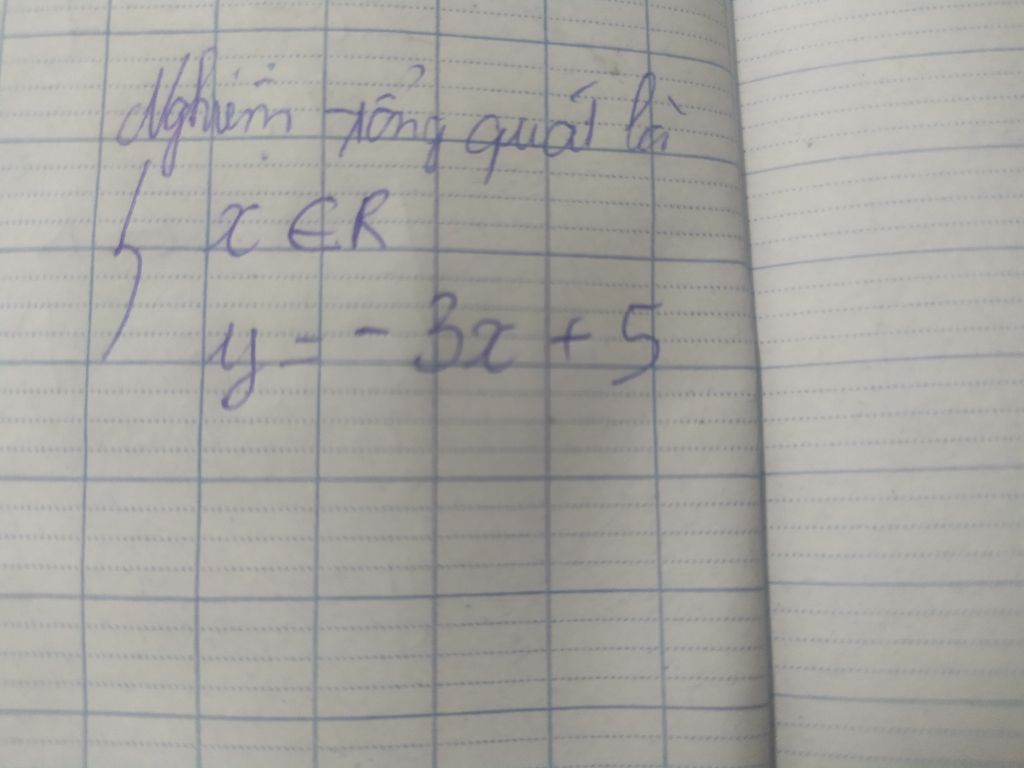 Nghiệm tổng quát là
{ x ∈ R
y = - 3x + 5